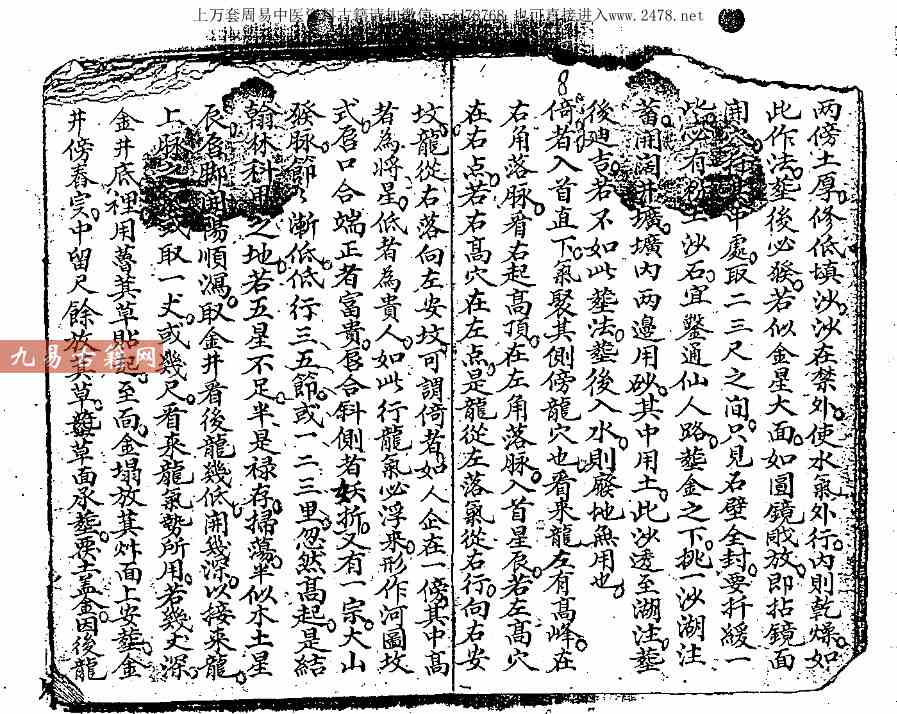 上万套周易中医资料古籍请加微信 78768 也可直接进入www.2478.net
8
兩傍土厚修低填沙沙在禁外使水氣外行内則乾燥如
此作法塟後必發若似金星大面如圓鏡敞放即拈鏡面
開 行其中處取二三尺之间只見石壁全封要扦緩一
此必有 土沙石宜鑿通仙人路塟金之下挑一沙湖注
蓄開濶井壙壙内兩邊用砂其中用土此沙透至湖注塟
後廸吉若不如此塟法塟後入水則廢地無用也
倚者入首直下氣聚其側傍龍穴也看来龍左有高峰在
右角落脉看右起高頂在左角落脉入首星辰若左高穴
在右点若右高穴在左点是龍從左落氣從右行向右安
坟龍從右落向左安坟可謂倚者如人企在一傍其中高
者為將星低者為貴人如此行龍氣必浮来形作河圖坟
式唇口合端正者富貴唇合斜側者妖折又有一宗大山
發脉節々漸低低行三五節或一二三里忽然高起是結
翰林科甲之地若五星不足半是禄存掃蕩半似水土星
辰唇脚開陽順濕取金井看後龍幾低開幾深以接来龍
上脉之 或取一丈或幾尺看来龍氣勢所用若幾丈深
金井底裡用蓍萁草貼起至面金塌放萁炸面上安塟金
井傍舂实中留尺餘放萁草 草面承塟要土盖金因後龍
九易古籍网